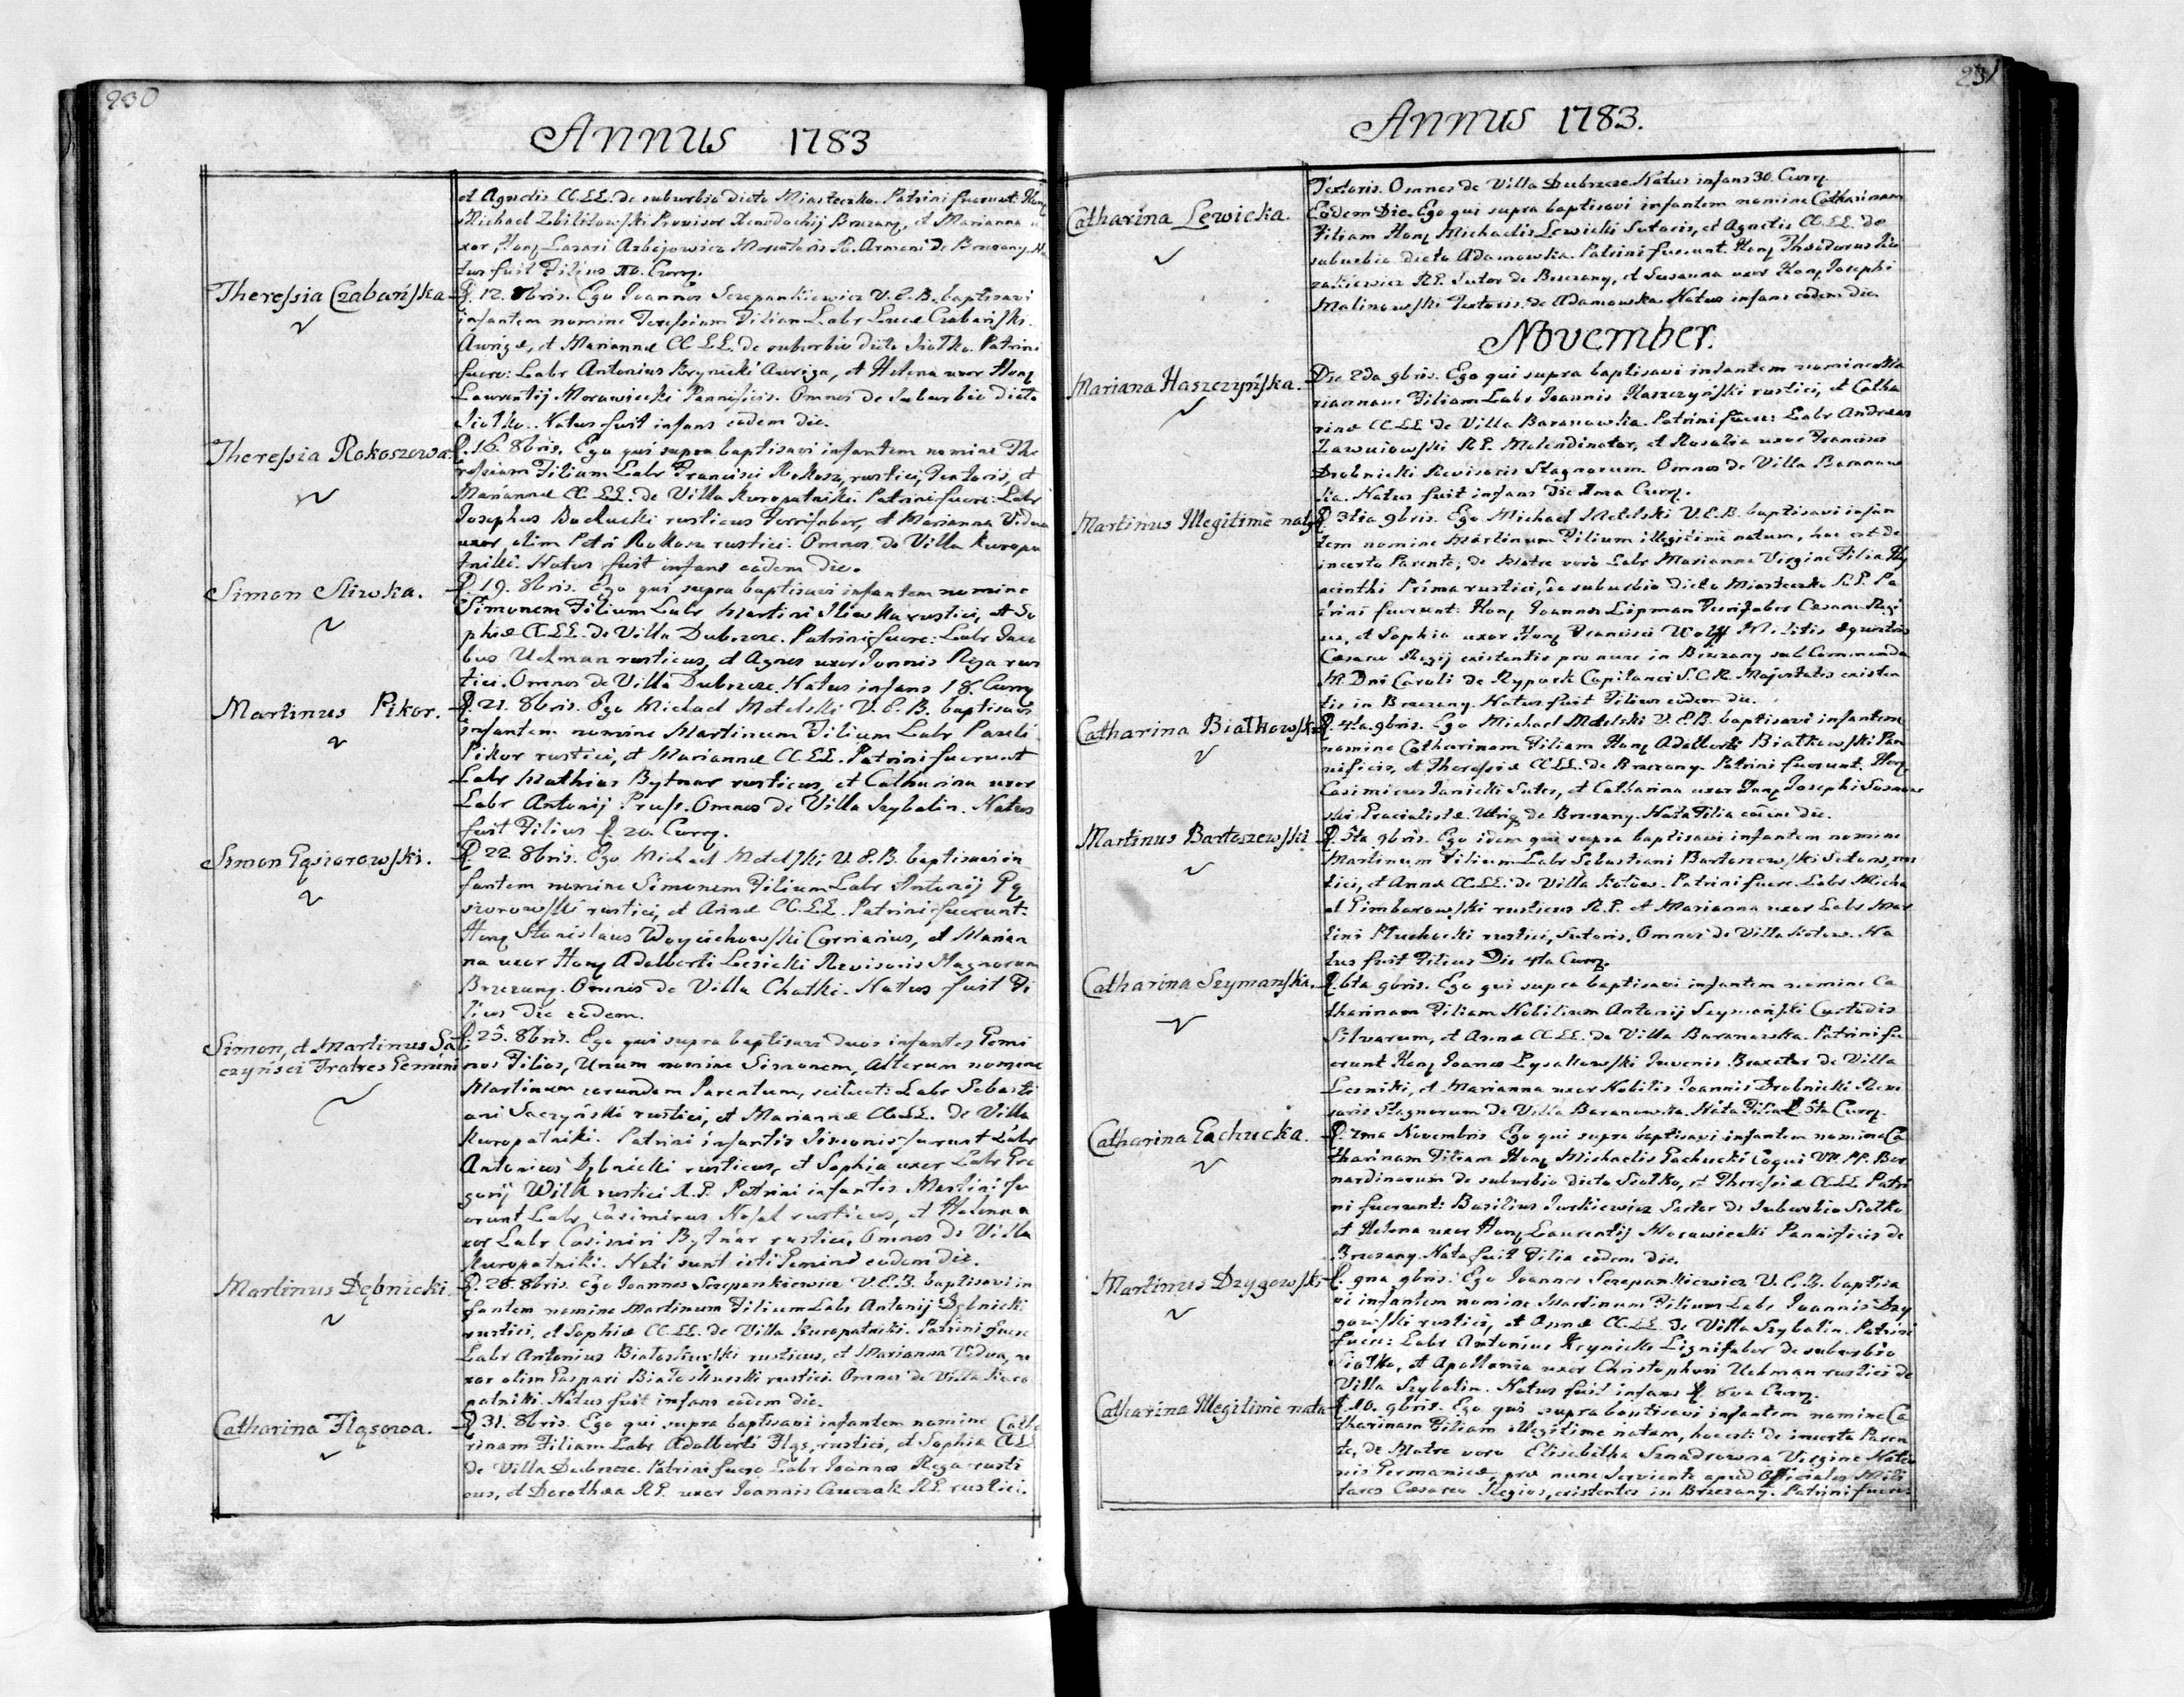 230
Annus 1783
et Agnetis CC.LL. de suburbio dicto Miasteczko. Patrini fuerunt: Honz
Michael Zbilitowski Provisor Xenodochij Brzezanz, et Marianna u
xor, Honz Lazari Mercatoris R. Armeni de Brzezany. Na
tus fuit Filius Currz.
Theressia Czabańska
D. 12. 8bris. Ego Joannes Szczepankiewicz V.E.B. baptisavi
infantem nomine Teressiam Filiam Labr Lucæ Czabański
Aurigæ, et Mariannæ CC.LL. de suburbio dicto Siołko. Patrini
fuere: Labr Antonius Krynicki Auriga, et Helena uxor Honz
Laurentij Morawiecki Pannificis. Omnes de suburbio dicto
Siołko. Natus fuit infans eodem die.
Theressia Rokoszowa
D. 16. 8bris. Ego qui supra baptisavi infantem nomine The
ressiam Filiam Labr Francisci Rokosz, rustici, Textoris, et
Mariannæ CC.LL. de Villa Kuropatniki. Patrini fuere: Labr
Josephus rusticus Ferrifaber, et Marianna Vidua
uxor olim Petri Rokosz rustici. Omnes de Villa Kuropa
tniki. Natus fuit infans eodem die.
Simon Sliwka.
D. 19. 8bris. Ego qui supra baptisavi infantem nomine
Simonem Filium Labr Martini Sliwka rustici, et So
phiæ CC.LL. de Villa Dubszcze. Patrini fuere: Labr Jaco
bus Uchman rusticus, et Agnes uxor Joannis Rega rus
tici. Omnes de Villa Dubszcze. Natus infans 18. Currz
Martinus Pikor.
D. 21. 8bris. Ego Michael Metelski V.E.B. baptisavi
infantem nomine Martinum Filium Labr Pauli
Pikor rustici, et Mariannæ CC.LL. Patrini fuerunt
Labr Mathias Bytnar rusticus, et Catharina uxor
Labr Antonij Pruss. Omnes de Villa Szybalin. Natus
fuit Filius D. 20. Currz.
Simon Gąsiorowski.
D. 22. 8bris. Ego Michael Metelski V.E.B. baptisavi in
fantem nomine Simonem Filium Labr Antonij Gą
siorowski rustici, et Annæ CC.LL. Patrini fuerunt:
Honz Stanislaus Woyciechowski, et Marian
na uxor Honz Adalberti Lesicki Revisoris Stagnorum
Brzezany. Omnes de Villa Chatki. Natus fuit Fi
lius die eodem.
Simon, et Martinus Sa
czyńsci Fratres Gemini
D. 25. 8bris. Ego qui supra baptisavi duos infantes Gemi
nos Filios, Unum nomine Simonem, Alterum nomine
Martinum eorundem Parentum, scilicet: Labr Sebasti
ani Saczyński rustici, et Mariannæ CC.LL. de Villa
Kuropatniki. Patrini infantis Simonis fuerunt Labr
Antonius Dębnicki rusticus, et Sophia uxor Labr Gre
gorij Wilk rustici R.G. Patrini infantis Martini fu
erunt Labr Casimirus Nosal rusticus, et Helena u
xor Labr Casimiri Bytnar rustici, Omnes de Villa
Kuropatniki. Nati sunt isti Gemini eodem die.
Martinus Dębnicki.
D. 28. 8bris. Ego Joannes Szczepankiewicz V.E.B. baptisavi in
fantem nomine Martinum Filium Labr Antonij Dębnicki
rustici, et Sophiæ CC.LL. de Villa Kuropatniki. Patrini fuere
Labr Antonius Białoskurski rusticus, et Marianna Vidua, u
xor olim Gaspari Białoskurski rustici. Omnes de Villa Kuro
patniki. Natus fuit infans eodem die.
Catharina Flqsowa.
D. 31. 8bris. Ego qui supra baptisavi infantem nomine Catha
rinam Filiam Labr Adalberti Flqs, rustici, et Sophiæ CC.LL.
de Villa Dubszcze. Patrini fuere Labr Joannes Rega rusti
cus, et Dorothea R.G. uxor Joannis R.G. rustici.
231
Annus 1783.
Textoris. Omnes de Villa Dubszcze. Natus infans 30. Currz.
Catharina Lewicka.
Eodem Die. Ego qui supra baptisavi infantem nomine Catharinam
Filiam Honz Michaelis Lewicki Sutoris, et Agnetis CC.LL. de
suburbio dicto Adamowka. Patrini fuerunt. Honz Theodorus
R.G. Sutor de Brzezany, et Susanna uxor Honz Josephi
Malinowski Textoris de Adamowka. Natus infans eodem die
November.
Mariana Haszczyńska.
Die 2da 9bris. Ego qui supra baptisavi infantem nomine Ma
riannam Filiam Labr Joannis Haszczyński rustici, et Catha
rinæ CC.LL. de Villa Baranowka. Patrini fuere: Labr Andreas
R.G. Molendinator, et Rosalia uxor Francisci
Drobnicki Revisoris Stagnorum. Omnes de Villa Baranow
ka. Natus fuit infans Die 1ma Currz.
Martinus Illegitimè natus
D. 3tia 9bris. Ego Michael Metelski V.E.B. baptisavi infan
tem nomine Martinum Filium illegitimè natum, hoc est de
incerto Parente, de Matre verò Labr Marianna Virgine Filia Hy
acinthi Prima rustici, de suburbio dicto Miasteczko R.G. Pa
trini fuerunt: Honz Joannes Lipman Ferrifaber Cæsareo-Regi
us, et Sophia uxor Honz Francisci Wolff Militis equestris
Cæsareo Regij existentis pro nunc in Brzezany sub Commenda
M. Dni Caroli de Rypark Capitanei S.C.R. Majestatis existen
tis in Brzezany. Natus fuit Filius eodem die.
Catharina Białkowska
D. 4ta 9bris. Ego Michael Metelski V.E.B. baptisavi infantem
nomine Catharinam Filiam Honz Adalberti Białkowski Pan
nificis, et Theressiæ CC.LL. de Brzezany. Patrini fuerunt. Honz
Casimirus Janicki Sutor, et Catharina uxor Honz Josephi Sosnow
ski de Brzezany. Nata Filia eodem die.
Martinus Bartoszewski
D. 5ta 9bris. Ego idem qui supra baptisavi infantem nomine
Martinum Filium Labr Sebastiani Bartoszewski Sutoris, rus
tici, et Annæ CC.LL. de Villa Kotow. Patrini fuere. Labr Micha
el Gimborowski rusticus R.G. et Marianna uxor Labr Mar
tini rustici, Sutoris. Omnes de Villa Kotow. Na
tus fuit Filius Die 4ta Currz.
Catharina Szymańska.
D. 6ta 9bris. Ego qui supra baptisavi infantem nomine Ca
tharinam Filiam Nobilium Antonij Szymański Custodis
Silvarum, et Annæ CC.LL. de Villa Baranowka. Patrini fu
erunt Honz Joannes Juvenis Braxator de Villa
Lesniki, et Marianna uxor Nobilis Joannis Drobnicki Revi
soris Stagnorum de Villa Baranowka. Nata Filia D. 5ta Currz.
Catharina Gachucka.
D. 7ma Novembris Ego qui supra baptisavi infantem nomine Ca
tharinam Filiam Honz Michaelis Gachucki Coqui VV. PP. Ber
nardinorum de suburbio dicto Siołko, et Theressiæ CC.LL. Patri
ni fuerunt: Basilius Jurkiewicz Sartor de suburbio Siołko
et Helena uxor Honz Laurentij Morawiecki Pannificis de
Brzezany. Nata fuit Filia eodem die.
Martinus Dzygowski
D. 9na 9bris. Ego Joannes Szczepankiewicz V.E.B. baptisa
vi infantem nomine Martinum Filium Labr Joannis Dzy
gowski rustici, et Annæ CC.LL. de Villa Szybalin. Patrini
fuere: Labr Antonius Krynicki Lignifaber de suburbio
Siołko, et Apollonia uxor Christophori Uchman rustici de
Villa Szybalin. Natus fuit infans D. 8va Currz.
Catharina Illegitimè nata
D. 10. 9bris. Ego qui supra baptisavi infantem nomine Ca
tharinam Filiam Illegitimè natam, hoc est de incerto Paren
te, de Matre vero Elisabetha Virgine Natio
nis Germanicæ, pro nunc Serviente apud Officiales Mili
tares Cæsareo Regios, existentes in Brzezany. Patrini fuere: